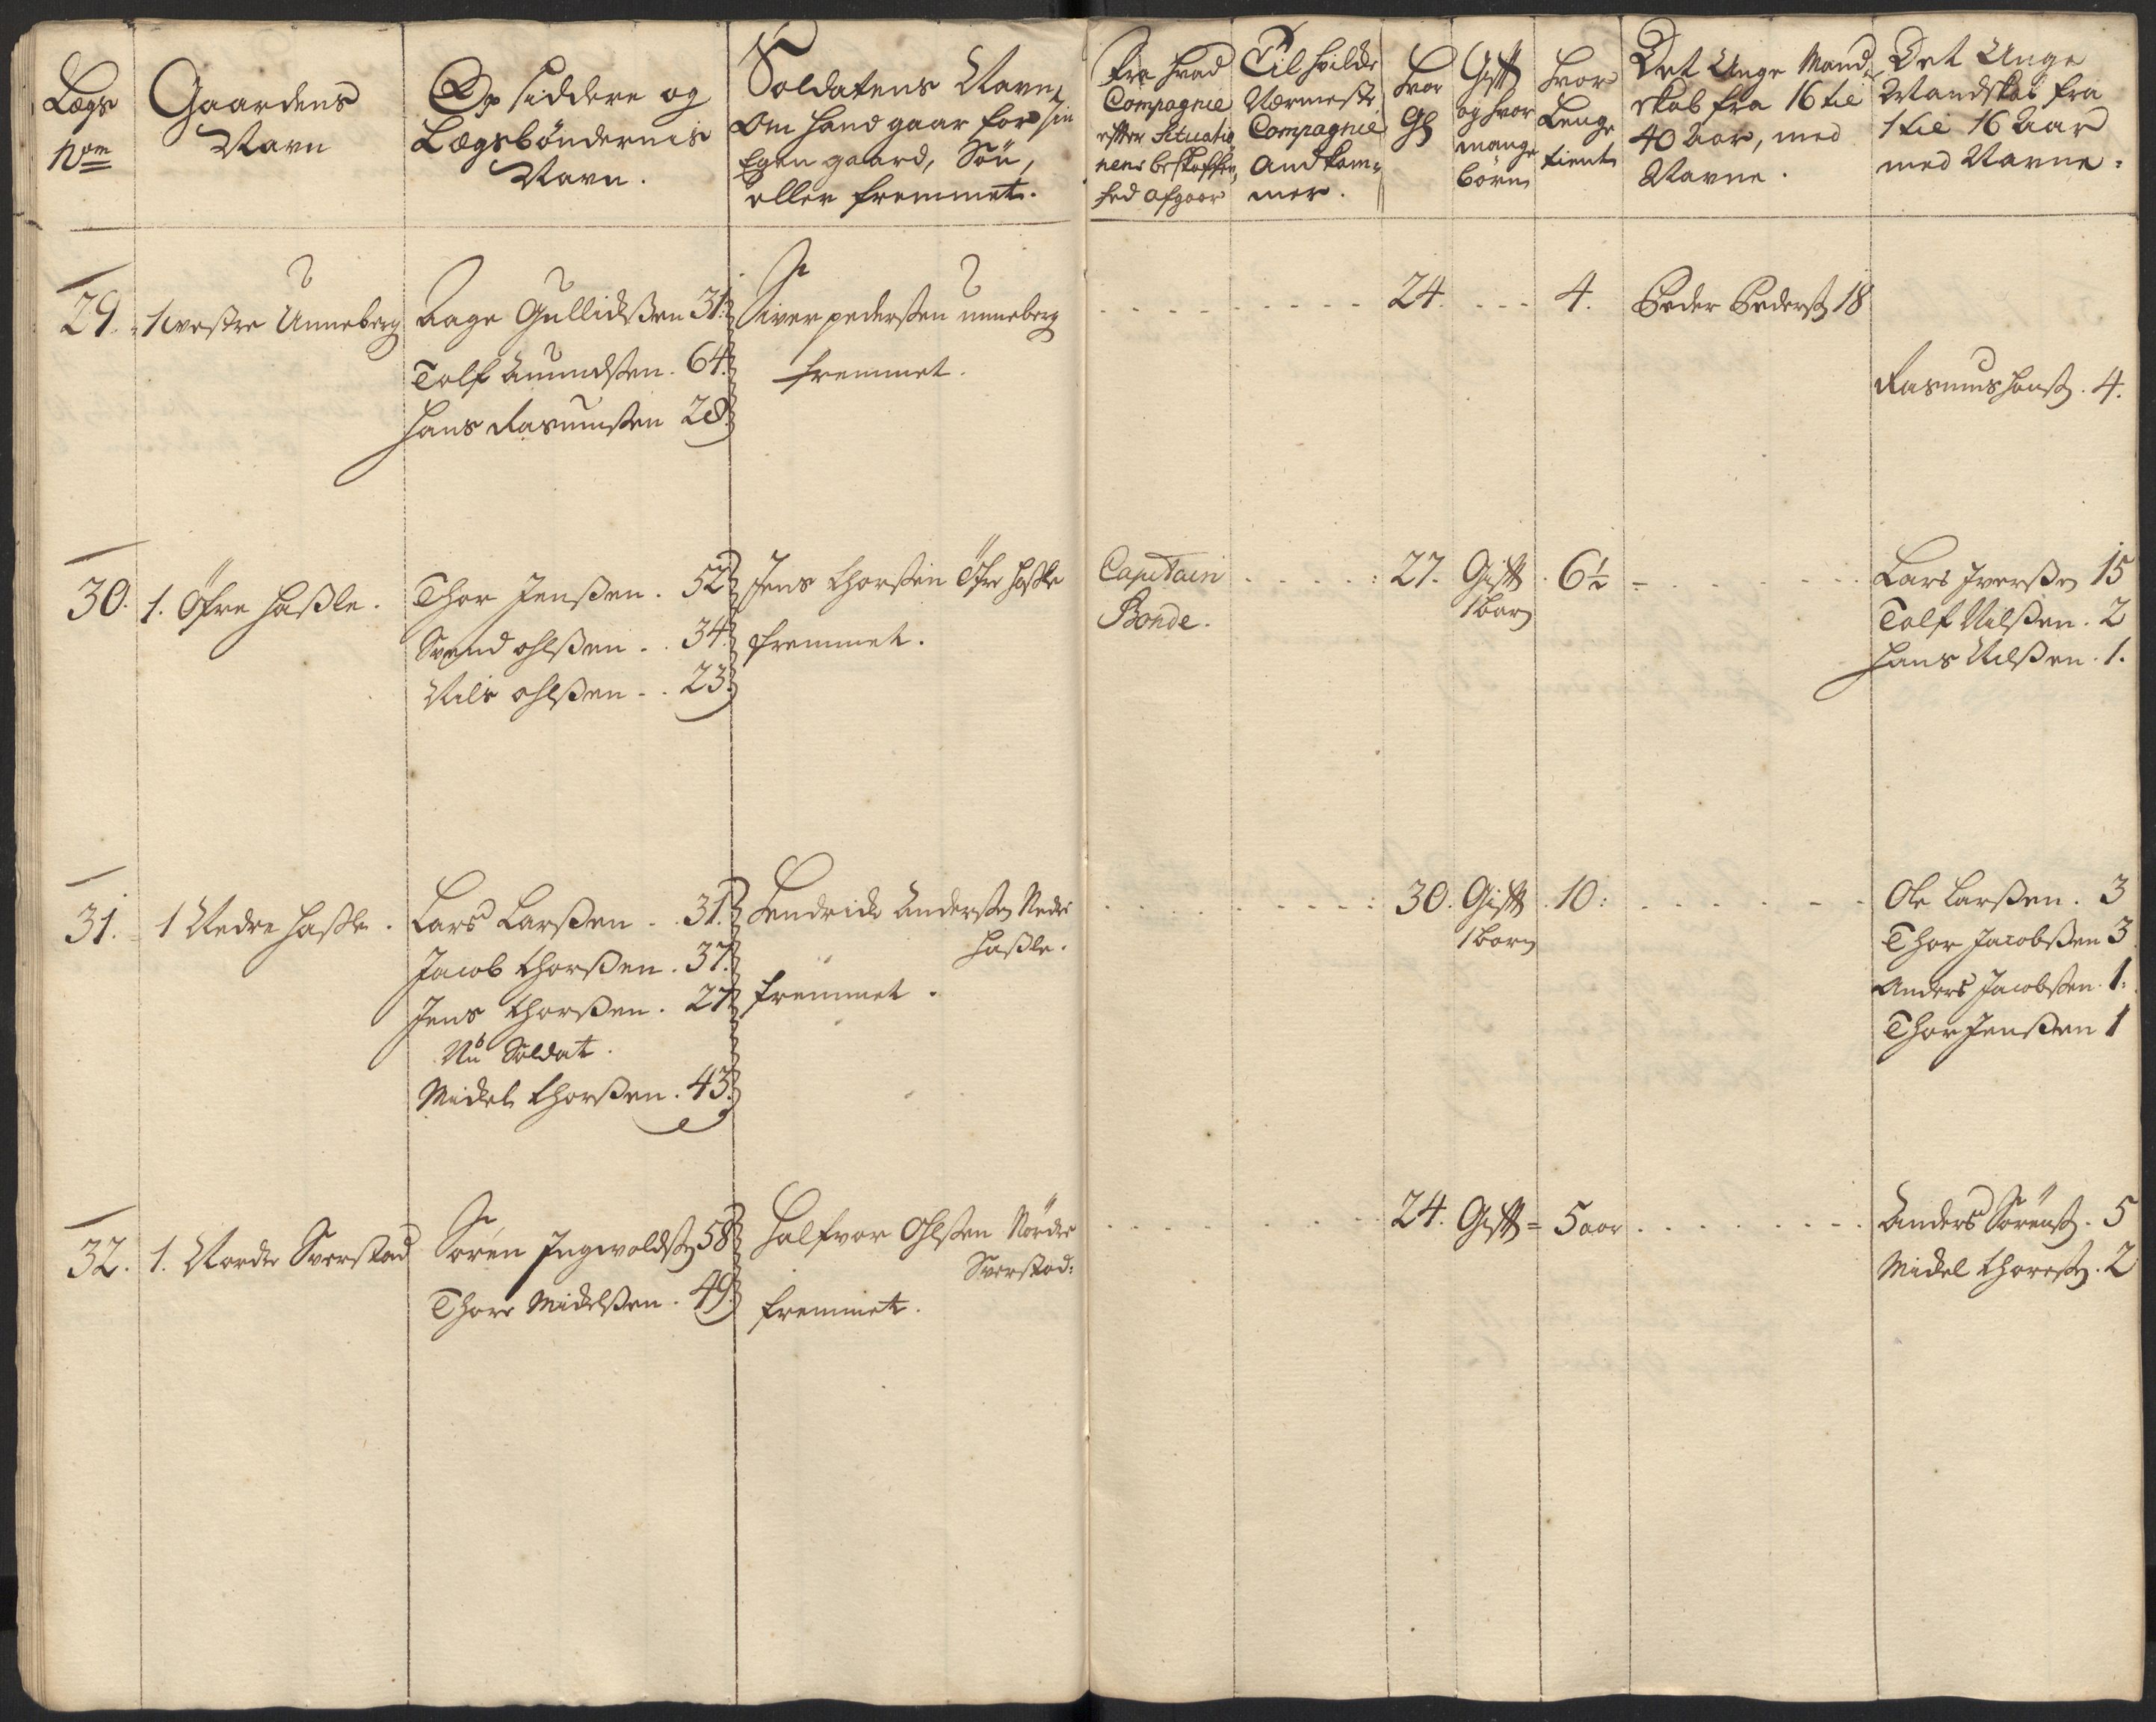 Lægs
Nom
Gaardens
Navn
Opsiddere og
Lægsböndernis
Navn.
Soldatens Navn,
Om hand gaar for sin
Egen gaard, Sön,
eller fremmet.
Fra hvad
Compagnie
efter Situatio
nens beskaffen,
hed afgaar
Til hvilcke
Nærmeste
Compagnie
And kom,
mer.
Hvor
Gl
Gift
og hvor
mange
börn
Hvor
Lenge
tient
Det Unge Mand,
skab fra 16 til
40 Aar, med
Navne.
Det Unge
Mandskab fra
1 til 16 Aar
med Navne.
29. 1 westre Unneberg
Aage Gullichsen 31.
Tolf Amundsen. 64.
Hans Rasmussen 28.
Siver pedersen unneberg
fremmet.
24.
4.
Peder Peders. 18
Rasmus Hans. 4.
30. 1. Öfre Hassle.
Thor Jenssen. 52
Svend ohlssen. 34.
Nils ohlssen. 23.
Jens Thorssen Öfre Hassle
fremmet.
Capitain
Bonde.
27. Gift 6½
1 barn
Lars Iverssen 15
Tolf Nilssen. 2
Hans Nilssen. 1.
31. 1 Nedre Hassle.
Lars Larssen. 31.
Jacob Thorssen. 37.
Jens Thorssen. 27
Nu Soldat.
Michel Thorssen. 43.
Hendrich Anderssen Nedre
Hassle.
fremmet.
30. Gift 10:
1 barn
Ole Larssen. 3
Thor Jacobssen 3
Anders Jacobssen. 1.
Thor Jenssen 1
32. 1. Nordre Sverstad
Sören Ingwolds. 58
Thore Michelssen. 49.
Halfvor Ohlssen Nördre
Sverstad:
fremmet.
24. Gift = 5 aar
Anders Sörens. 5
Michel Thoress. 2